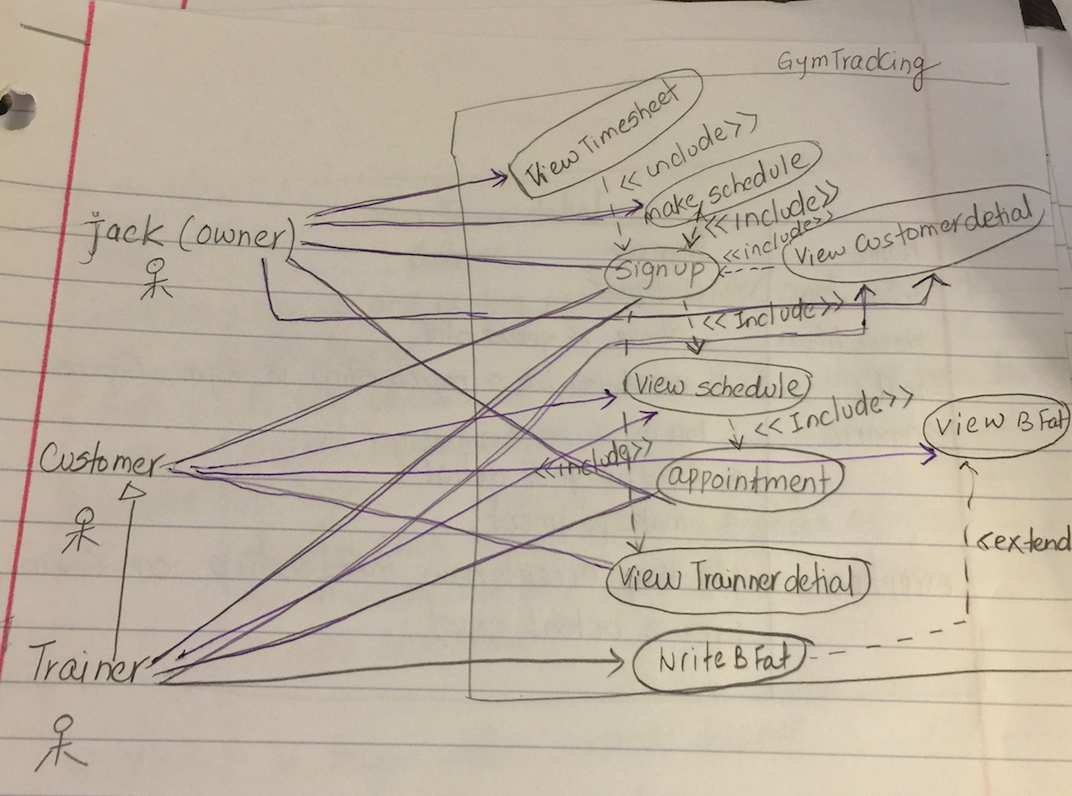 GymTracking
View Timesheet
<< include >>
make schedule
<< Include >>
jack (owner)
<<include>>
View Customer detial
Sign up
<< Include >>
View schedule
<< Include >>
View B Fat
Customer
<<include>>
appointment
<<extend
View Trainner detial
Trainer
Write B Fat